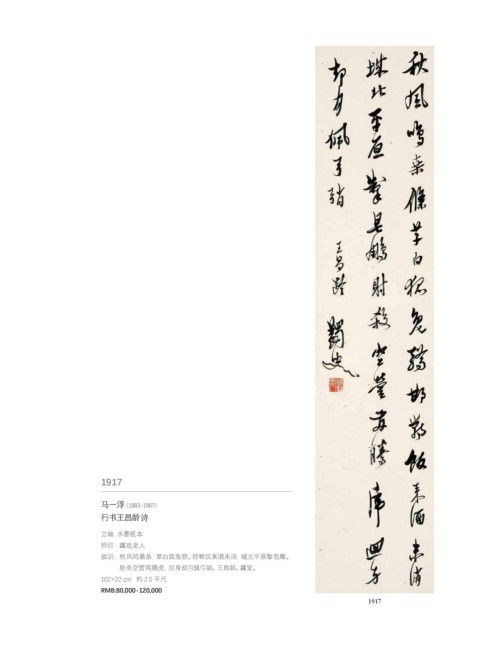 1917
马一浮 (1883-1967)
行书王昌龄诗
立轴 水墨纸本
钤印：蠲戏老人
款识：秋风鸣桑条，草白狐兔骄。邯郸饮来酒未消，城北平原掣皂雕。
射杀空营两腾虎，回身却月佩弓弰。王昌龄。蠲叟。
102×22 cm. 约2.0平尺
RMB:80,000-120,000
秋風鳴桑條草白狐兔驕邯鄲飲来酒未消
城北平原掣皂鵰射殺空營两騰虎迴身
却月佩弓弰 王昌齡 蠲叟
1917